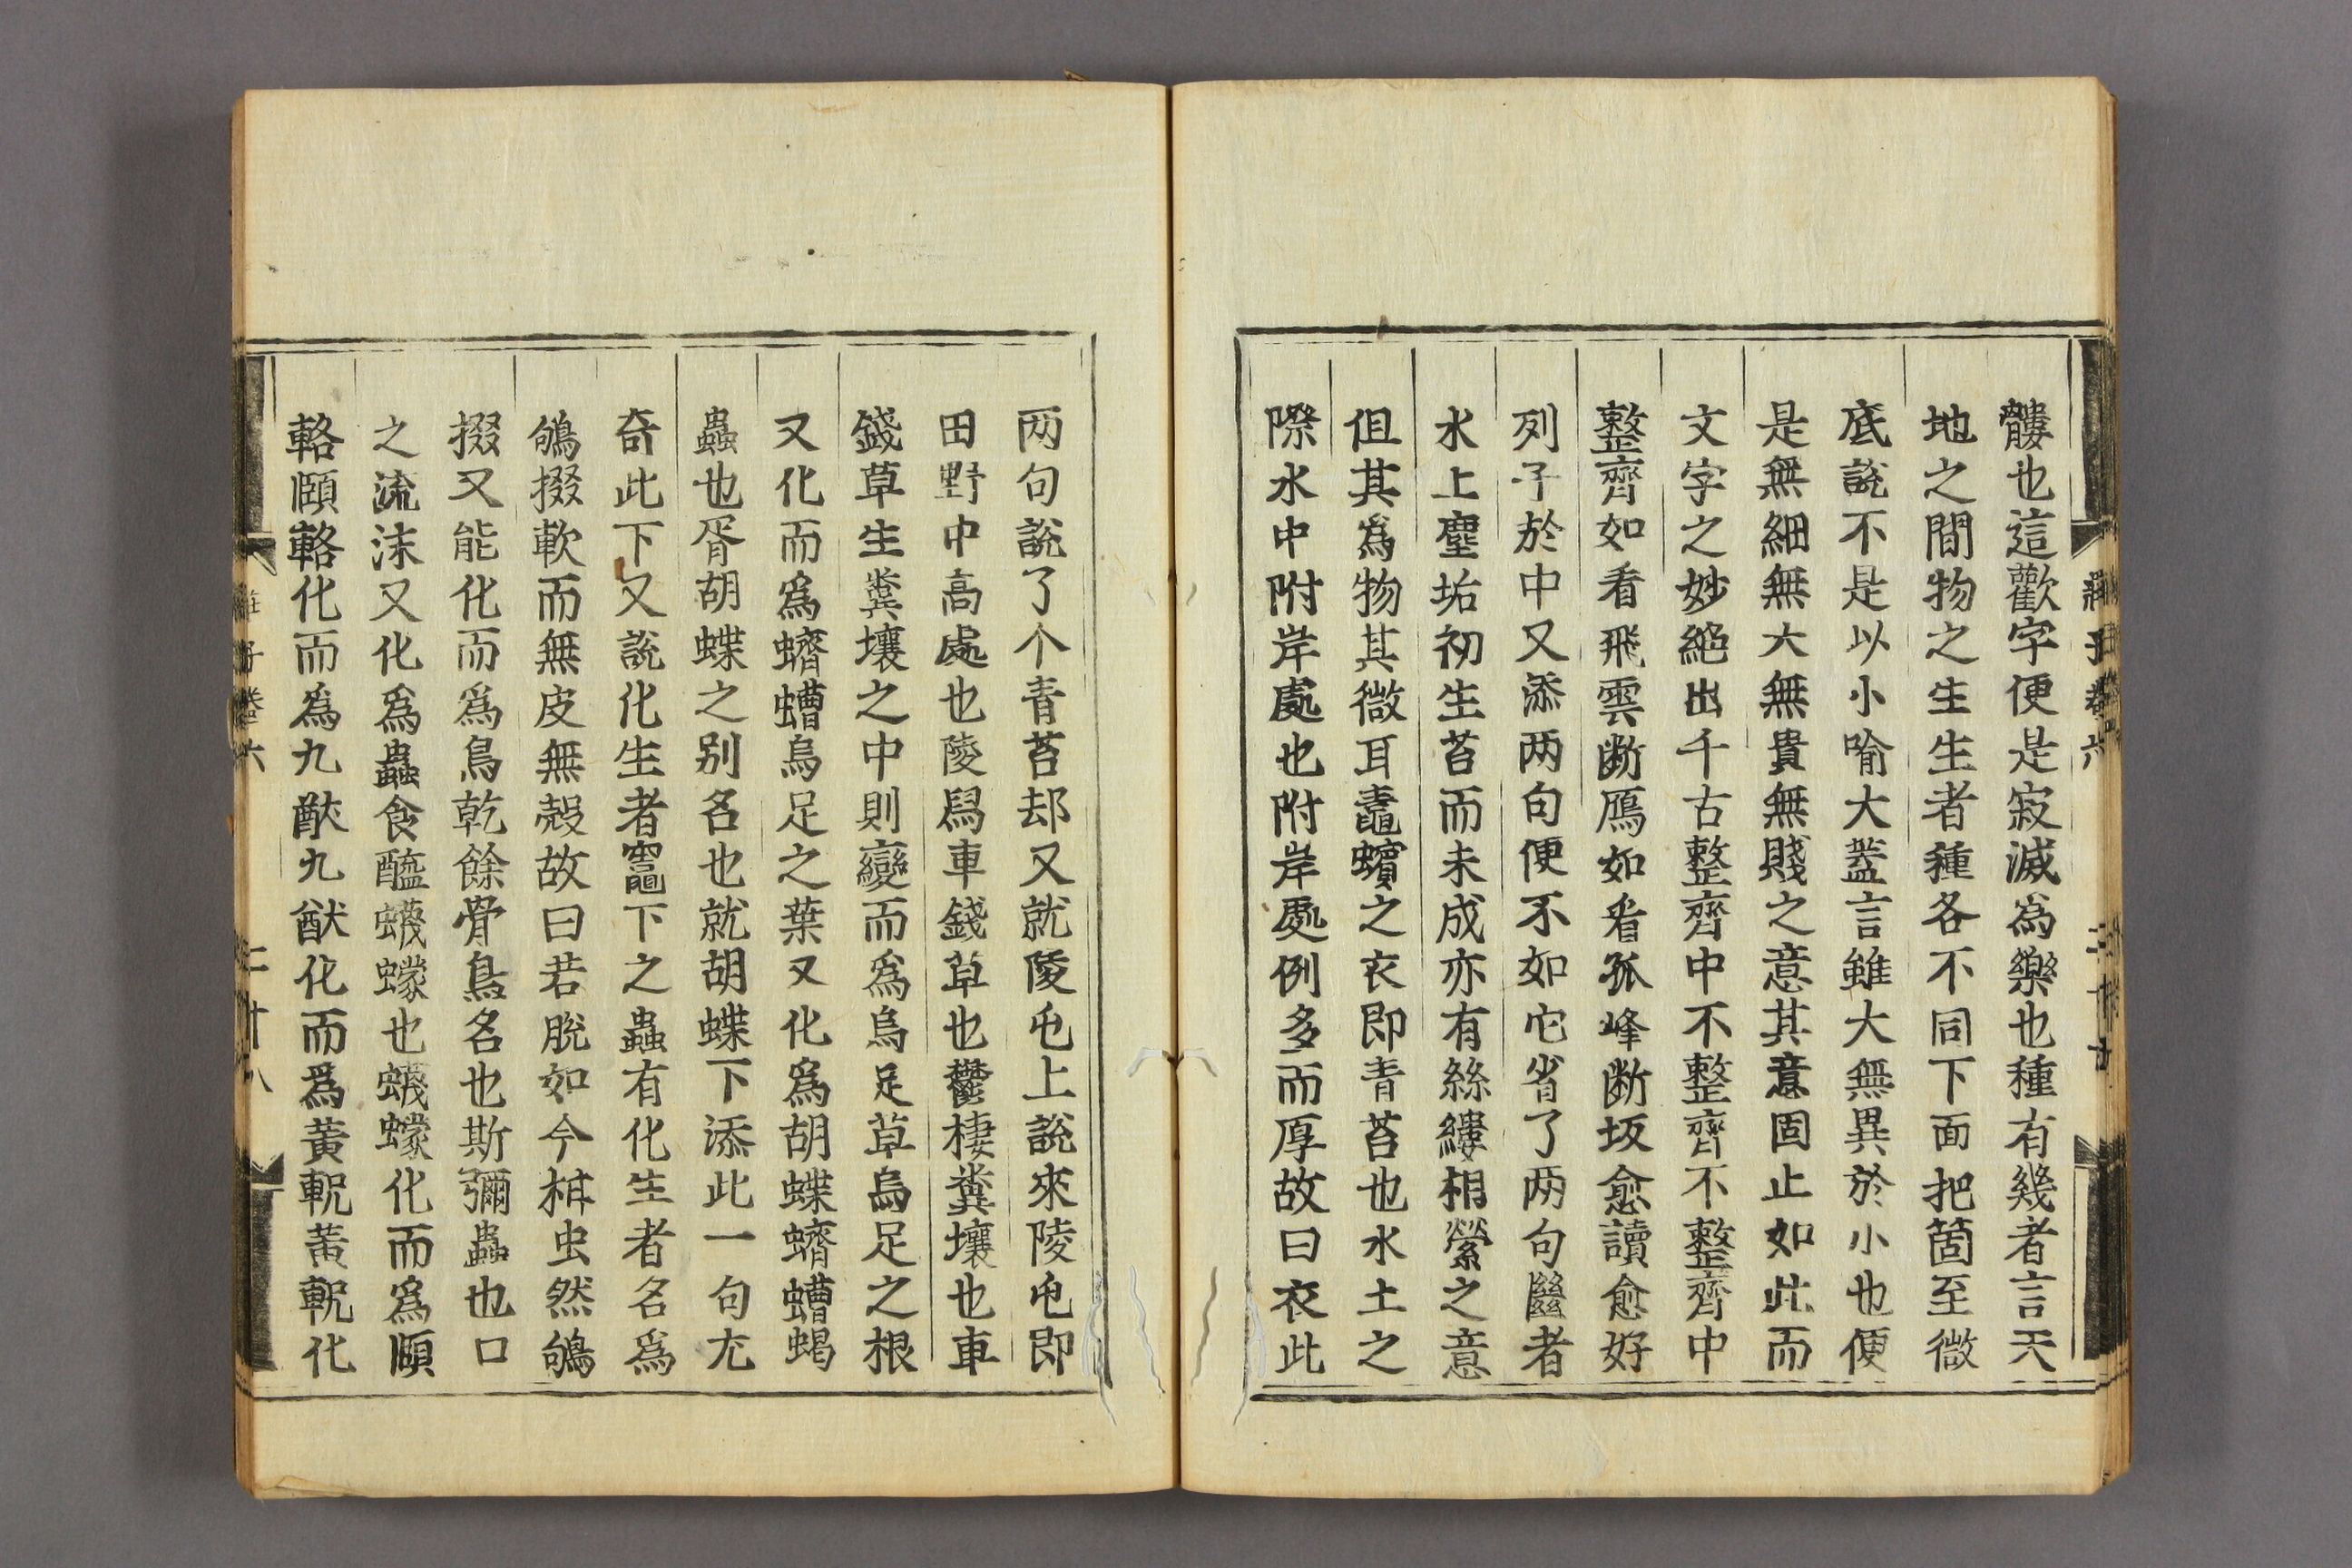 髏也這歡字便是寂滅爲樂也種有幾者言天
地之間物之生生者種各不同下面把箇至微
底說不是以小喻大蓋言雖大無異於小也便
是無細無大無貴無賤之意其意固止如此而
文字之妙絕出千古整齊中不整齊不整齊中
整齊如看飛雲断鴈如看孤峰断坂愈讀愈好
列子於中又添两句便不如它省了两句㡭者
水上塵垢初生苔而未成亦有絲縷相縈之意
但其爲物其微耳鼃蠙之衣即青苔也水土之
際水中附岸處也附岸處例多而厚故曰衣此
两句說了个青苔却又就陵屯上說來陵屯即
田野中高處也陵舃車錢草也鬱棲糞壤也車
錢草生糞壤之中則變而爲烏足草烏足之根
又化而爲蠐螬烏足之葉又化爲胡蝶蠐螬蝎
蟲也胥胡蝶之别名也就胡蝶下添此一句尤
奇此下又說化生者竈下之蟲有化生者名爲
鴝掇軟而無皮無殼故曰若脫如今柑虫然鴝
掇又能化而爲鳥乾餘骨鳥名也斯彌蟲也口
之流沫又化爲蟲食醯蠛蠓也蠛蠓化而爲頤
輅頤輅化而爲九猷九猷化而爲黃軦黃軦化
莊子卷六
二十八